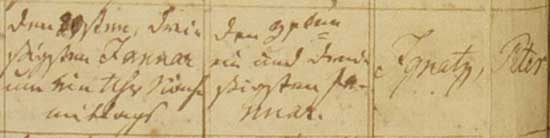 den drei
ßigsten Januar
um ein Uhr Nach
mittags
den
ein und drei
ßigsten Ja-
nuar.
Ignatz, Peter